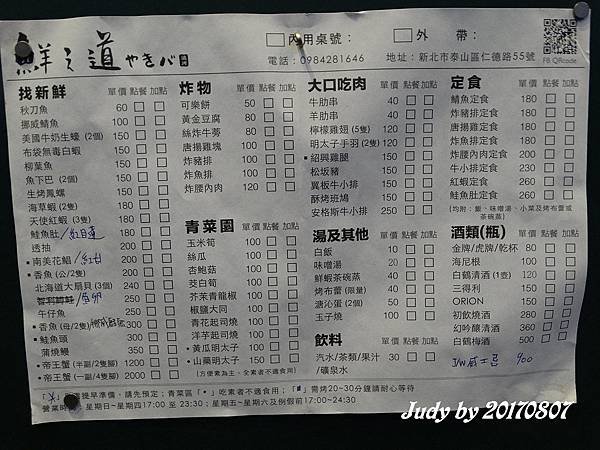 鮮之道やきバ
內用桌號：
外 帶：
電話：0984281646
地址：新北市泰山區仁德路55號
FB QRcode
找新鮮 單價 點餐 加點
秋刀魚 60
挪威鯖魚 100
美國牛奶生蠔 (2個) 150
布袋無毒白蝦 150
柳葉魚 150
魚下巴 (2個) 150
生烤鳳螺 150
海草蝦 (2隻) 150
天使紅蝦 (2隻) 180
鮭魚肚 200
透抽 200
南美花鯧 200
香魚 (公/2隻) 200
北海道大扇貝 (3個) 240
午仔魚
香魚 (母/2隻) 300
鮭魚頭
蒲燒鰻 350
帝王蟹 (一副/2隻腳) 1200
帝王蟹 (一副/4隻腳) 2000
炸物 單價 點餐 加點
可樂餅 50
黃金豆腐 80
絲炸牛蒡 80
唐揚雞塊 100
炸豬排 100
炸魚排 100
炸腰內肉 120
青菜園 單價 點餐 加點
玉米筍 100
絲瓜 100
杏鮑菇 100
茭白筍 100
芥茉青龍椒 100
椒鹽大同 100
青花起司燒 100
洋芋起司燒 100
黃瓜明太子 100
山藥明太子 150
(方便素為主，全素者不適食用)
大口吃肉 單價 點餐 加點
牛肋串 40
羊肋串 40
檸檬雞翅 (5隻) 120
明太子手羽 (2隻) 130
紹興雞腿 150
松坂豬 150
翼板牛小排 150
酥烤班鳩 150
安格斯牛小排 250
湯及其他 單價 點餐 加點
白飯 10
味噌湯 20
鮮蝦茶碗蒸 40
烤布蕾 (限量) 40
溏沁蛋 (2個) 50
玉子燒 100
飲料 單價 點餐 加點
汽水/茶類/果汁/礦泉水 30
定食 單價 點餐 加點
鯖魚定食 180
炸豬排定食 180
唐揚雞定食 180
炸魚排定食 180
炸腰內肉定食 200
牛小排定食 230
紅蝦定食 260
鮭魚肚定食 260
(均附：飯、味噌湯、小菜及烤布蕾或茶碗蒸)
酒類(瓶) 單價 點餐 加點
金牌/虎牌/乾杯 80
海尼根 100
白鶴清酒 (1壺) 120
三得利 150
ORION 150
初飲燒酒 280
幻吟釀清酒 360
白鶴梅酒 500
JW威士忌 900
需提早準備，請先預定；青菜區「•」吃素者不適食用；「■」需烤20~30分鐘請耐心等待
營業時間：星期日~星期四17:00 至 23:30；星期五~星期六及例假前17:00~24:30
Judy by 20170807